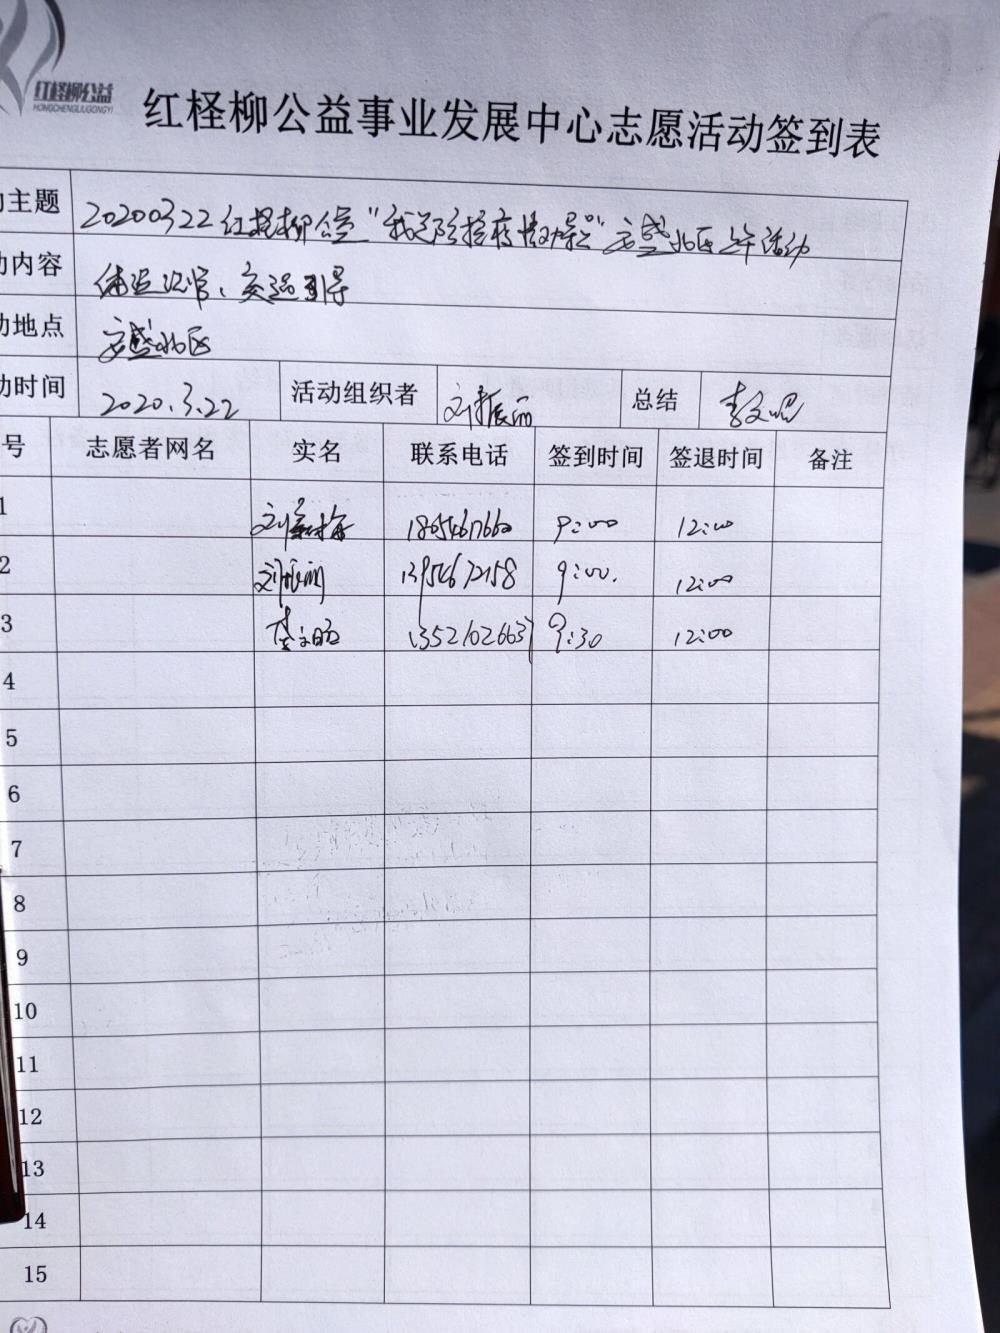 红柽柳公益
HONGCHENGLIUGONGYI
红柽柳公益事业发展中心志愿活动签到表
动主题 20200322红柽柳公益“我是防控疫情劝导员”安盛北区上午活动
动内容 体温测量、交通引导
动地点 安盛北区
动时间 2020.3.22 活动组织者 刘振丽 总结
号 志愿者网名 实名 联系电话 签到时间 签退时间 备注
1 9:00 12:00
2 刘振丽 13954672158 9:00. 12:00
3 13521026637 9:30 12:00
4
5
6
7
8
9
10
11
12
13
14
15